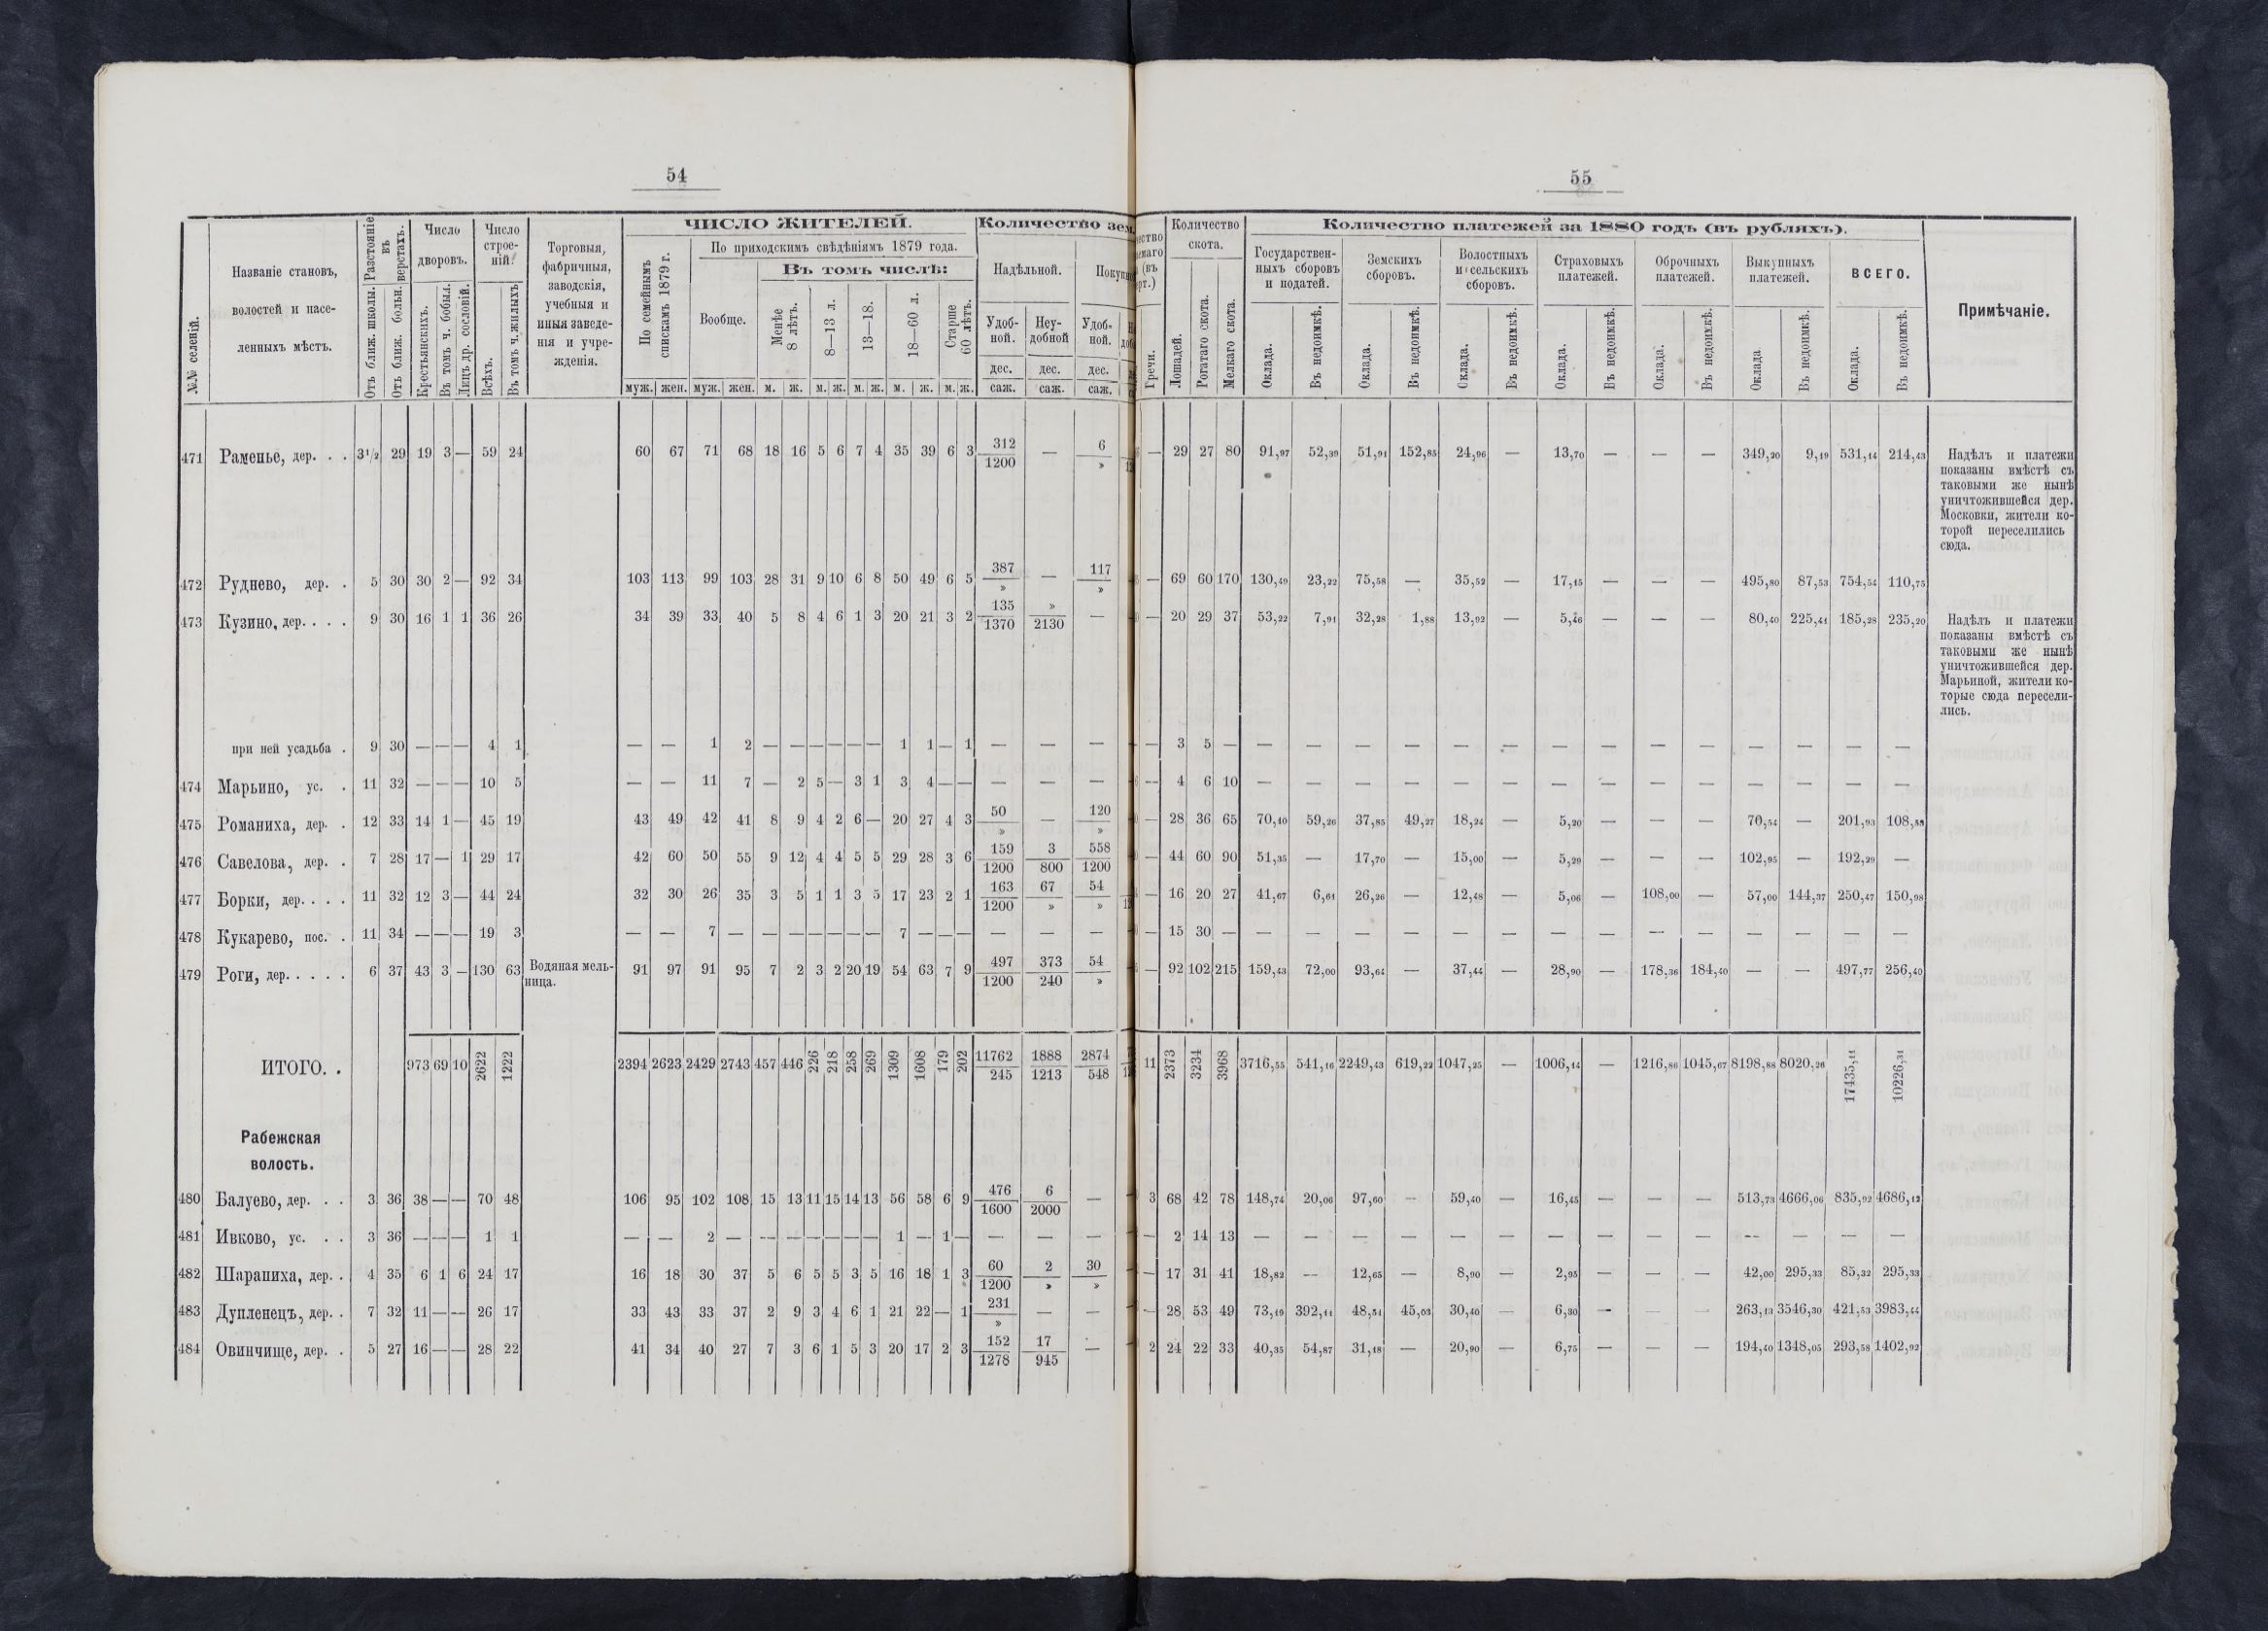 54
55
№№ селеній.
Названіе становъ,
волостей и насе-
ленныхъ мѣстъ.
Разстояніе
въ
верстахъ.
Отъ ближ. школы.
Отъ ближ. больн.
Число
дворовъ.
Крестьянскихъ.
Въ томъ ч. бобыл.
Лицъ др. сословій.
Число
строе-
ній.
Всѣхъ.
Въ томъ ч. жилыхъ
Торговыя,
фабричныя,
заводскія,
учебныя и
иныя заведе-
нія и учре-
жденія.
ЧИСЛО ЖИТЕЛЕЙ.
По семейнымъ
спискамъ 1879 г.
По приходскимъ свѣдѣніямъ 1879 года.
Вообще.
Въ томъ числѣ:
Менѣе
8 лѣтъ.
8—13 л.
13—18.
18—60 л.
Старше
60 лѣтъ.
муж. жен. муж. жен. м. ж. м. ж. м. ж. м. ж. м. ж.
Количество зем
Надѣльной.
Удоб-
ной.
Неу-
добной
Удоб-
ной.
дес. дес. дес.
саж. саж. саж.
Гречи.
Количество
скота.
Лошадей.
Рогатаго скота.
Мелкаго скота.
Количество платежей за 1880 годъ (въ рубляхъ).
Государствен-
ныхъ сборовъ
и податей.
Земскихъ
сборовъ.
Волостныхъ
и сельскихъ
сборовъ.
Страховыхъ
платежей.
Оброчныхъ
платежей.
Выкупныхъ
платежей.
ВСЕГО.
Оклада. Въ недоимкѣ. Оклада. Въ недоимкѣ. Оклада. Въ недоимкѣ. Оклада. Въ недоимкѣ. Оклада. Въ недоимкѣ. Оклада Въ недоимкѣ. Оклада. Въ недоимкѣ.
Примѣчаніе.
471 Раменье, дер. . . 3½ 29 19 3 — 59 24 60 67 71 68 18 16 5 6 7 4 35 39 6 3 312/1200 — 6/» — 29 27 80 91,97 52,39 51,91 152,85 24,96 — 13,70 — — — 349,20 9,19 531,14 214,43
Надѣлъ и платежи
показаны вмѣстѣ съ
таковыми же нынѣ
уничтожившейся дер.
Московки, жители ко-
торой переселились
сюда.
472 Руднево, дер. . 5 30 30 2 — 92 34 103 113 99 103 28 31 9 10 6 8 50 49 6 5 387/» — 117/» — 69 60 170 130,49 23,22 75,58 — 35,52 — 17,15 — — — 495,80 87,53 754,54 110,75
473 Кузино, дер. . . . 9 30 16 1 1 36 26 34 39 33 40 5 8 4 6 1 3 20 21 3 2 135/1370 »/2130 — — 20 29 37 53,22 7,91 32,28 1,88 13,92 — 5,46 — — — 80,40 225,41 185,28 235,20
Надѣлъ и платежи
показаны вмѣстѣ съ
таковыми же нынѣ
уничтожившейся дер.
Марьиной, жители ко-
торые сюда пересели-
лись.
при ней усадьба . 9 30 — — — 4 1 — — 1 2 — — — — — — 1 1 — 1 — — — — 3 5 — — — — — — — — — — — — — — —
474 Марьино, ус. . 11 32 — — — 10 5 — — 11 7 — 2 5 — 3 1 3 4 — — — — — — 4 6 10 — — — — — — — — — — — — — —
475 Романиха, дер. . 12 33 14 1 — 45 19 43 49 42 41 8 9 4 2 6 — 20 27 4 3 50/» — 120/» — 28 36 65 70,40 59,26 37,85 49,27 18,24 — 5,20 — — — 70,54 — 201,93 108,53
476 Савелова, дер. . 7 28 17 — 1 29 17 42 60 50 55 9 12 4 4 5 5 29 28 3 6 159/1200 3/800 558/1200 — 44 60 90 51,35 — 17,70 — 15,00 — 5,29 — — — 102,95 — 192,29 —
477 Борки, дер. . . . 11 32 12 3 — 44 24 32 30 26 35 3 5 1 1 3 5 17 23 2 1 163/1200 67/» 54/» — 16 20 27 41,67 6,61 26,26 — 12,48 — 5,06 — 108,00 — 57,00 144,37 250,47 150,98
478 Кукарево, пос. . 11 34 — — — 19 3 — — 7 — — — — — — — 7 — — — — — — — 15 30 — — — — — — — — — — — — — — —
479 Роги, дер. . . . . 6 37 43 3 — 130 63 Водяная мель-
ница. 91 97 91 95 7 2 3 2 20 19 54 63 7 9 497/1200 373/240 54/» — 92 102 215 159,43 72,00 93,64 — 37,44 — 28,90 — 178,36 184,40 — — 497,77 256,40
ИТОГО. . 973 69 10 2622 1222 2394 2623 2429 2743 457 446 226 218 258 269 1309 1608 179 202 11762/245 1888/1213 2874/548 11 2373 3234 3968 3716,55 541,16 2249,43 619,22 1047,25 — 1006,14 — 1216,86 1045,67 8198,88 8020,26 17435,11 10226,31
Рабежская
волость.
480 Балуево, дер. . . 3 36 38 — — 70 48 106 95 102 108 15 13 11 15 14 13 56 58 6 9 476/1600 6/2000 — 3 68 42 78 148,74 20,06 97,60 — 59,40 — 16,45 — — — 513,73 4666,06 835,92 4686,12
481 Ивково, ус. . . 3 36 — — — 1 1 — — 2 — — — — — — — 1 — 1 — — — — — 2 14 13 — — — — — — — — — — — — — —
482 Шарапиха, дер. . 4 35 6 1 6 24 17 16 18 30 37 5 6 5 5 3 5 16 18 1 3 60/1200 2/» 30/» — 17 31 41 18,82 — 12,65 — 8,90 — 2,95 — — — 42,00 295,33 85,32 295,33
483 Дупленецъ, дер. . 7 32 11 — — 26 17 33 43 33 37 2 9 3 4 6 1 21 22 — 1 231/» — — — 28 53 49 73,19 392,11 48,51 45,03 30,40 — 6,30 — — — 263,13 3546,30 421,53 3983,44
484 Овинчище, дер. . 5 27 16 — — 28 22 41 34 40 27 7 3 6 1 5 3 20 17 2 3 152/1278 17/945 — 2 24 22 33 40,35 54,87 31,18 — 20,90 — 6,75 — — — 194,40 1348,05 293,58 1402,92